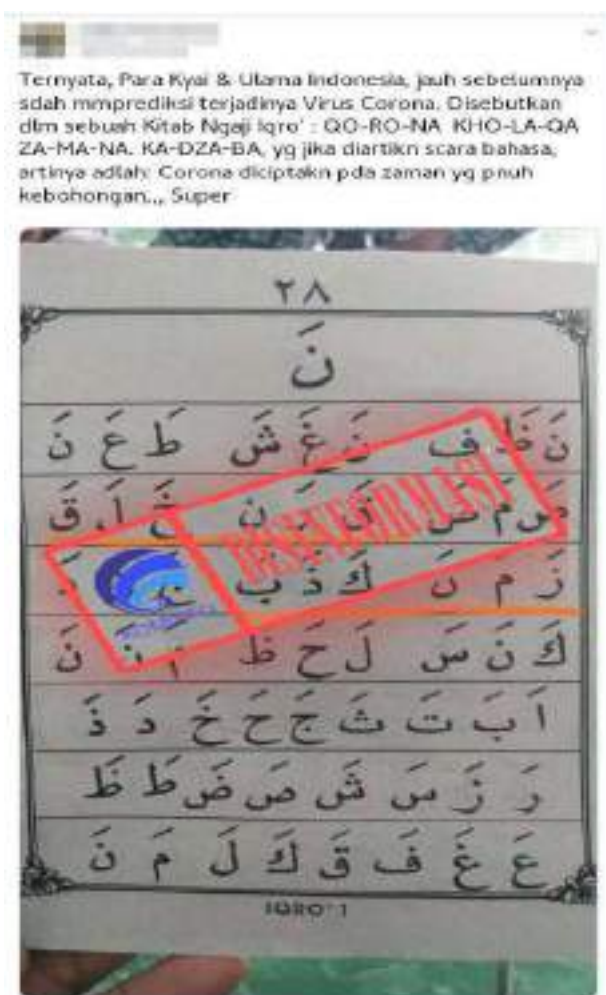 Ternyata, Para Kyai & Ulama Indonesia, jauh sebelumnya
sdah mmprediksi terjadinya Virus Corona. Disebutkan
dlm sebuah Kitab Ngaji Iqro' : QO-RO-NA KHO-LA-QA
ZA-MA-NA. KA-DZA-BA, yg jika diartikn scara bahasa,
artinya adlah: Corona diciptakn pda zaman yg pnuh
kebohongan,,, Super
٢٨
نَ
نَ ظَ فَ نَ غَ شَ طَ عَ نَ
قَ رَ نَ خَ لَ قَ
زَ مَ نَ كَ ذَ بَ
كَ نَ سَ لَ حَ ظَ
اَ بَ تَ ثَ جَ حَ خَ دَ ذَ
رَ زَ سَ شَ صَ ضَ طَ ظَ
عَ غَ فَ قَ كَ لَ مَ نَ
IQRO' 1
DISINFORMASI